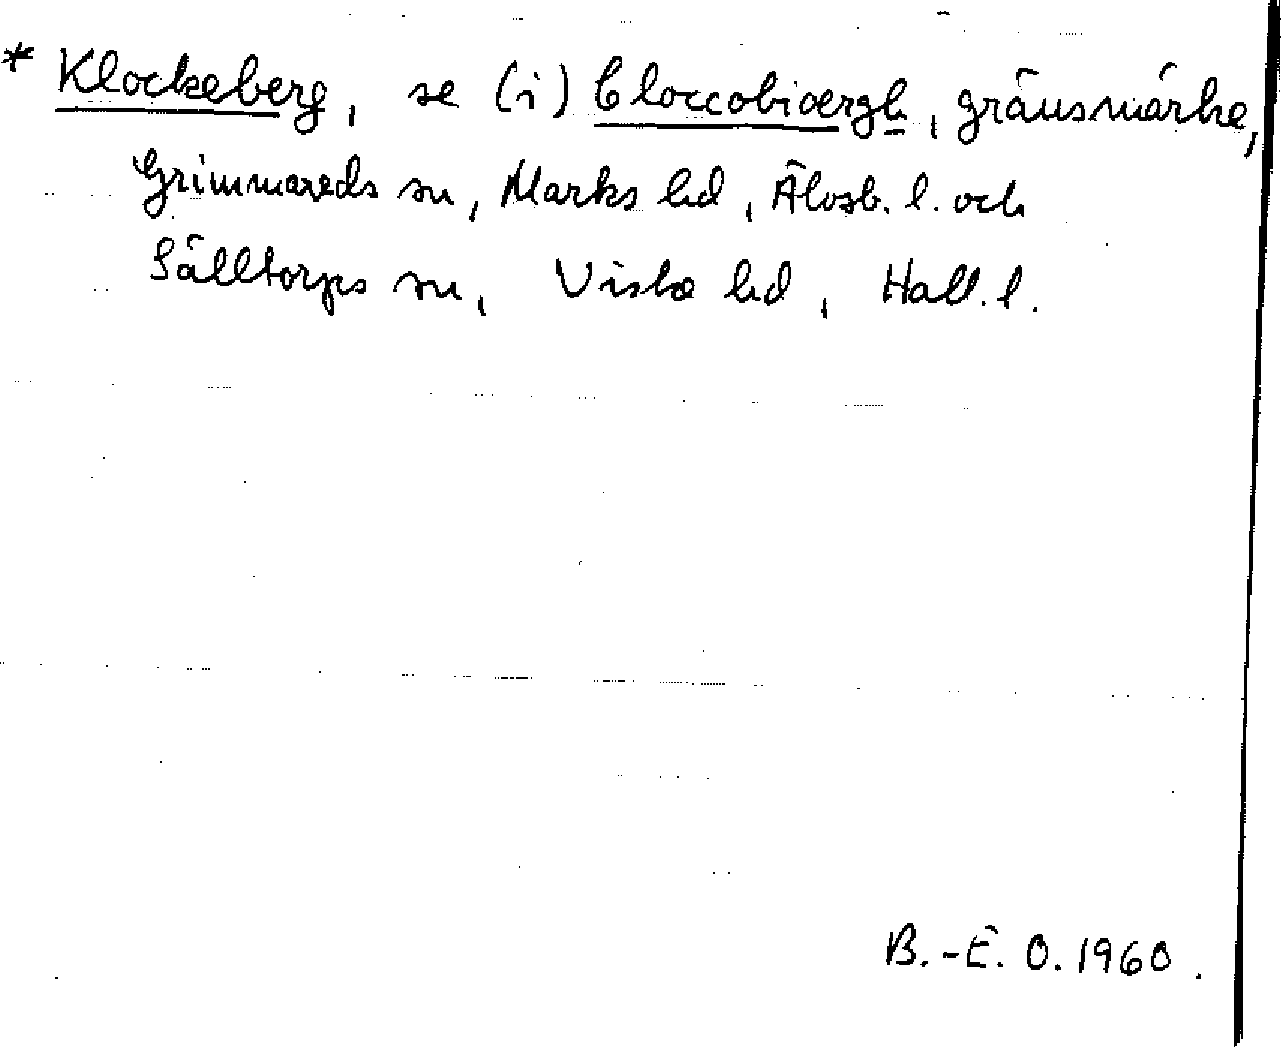 * Klockeberg, se (i) Cloccobioergh, gränsmärke,
Grimmareds sn, Marks hd, Älvsb. l. och
Sälltorps sn, Viske hd, Hall. l.
B.-E. O. 1960.